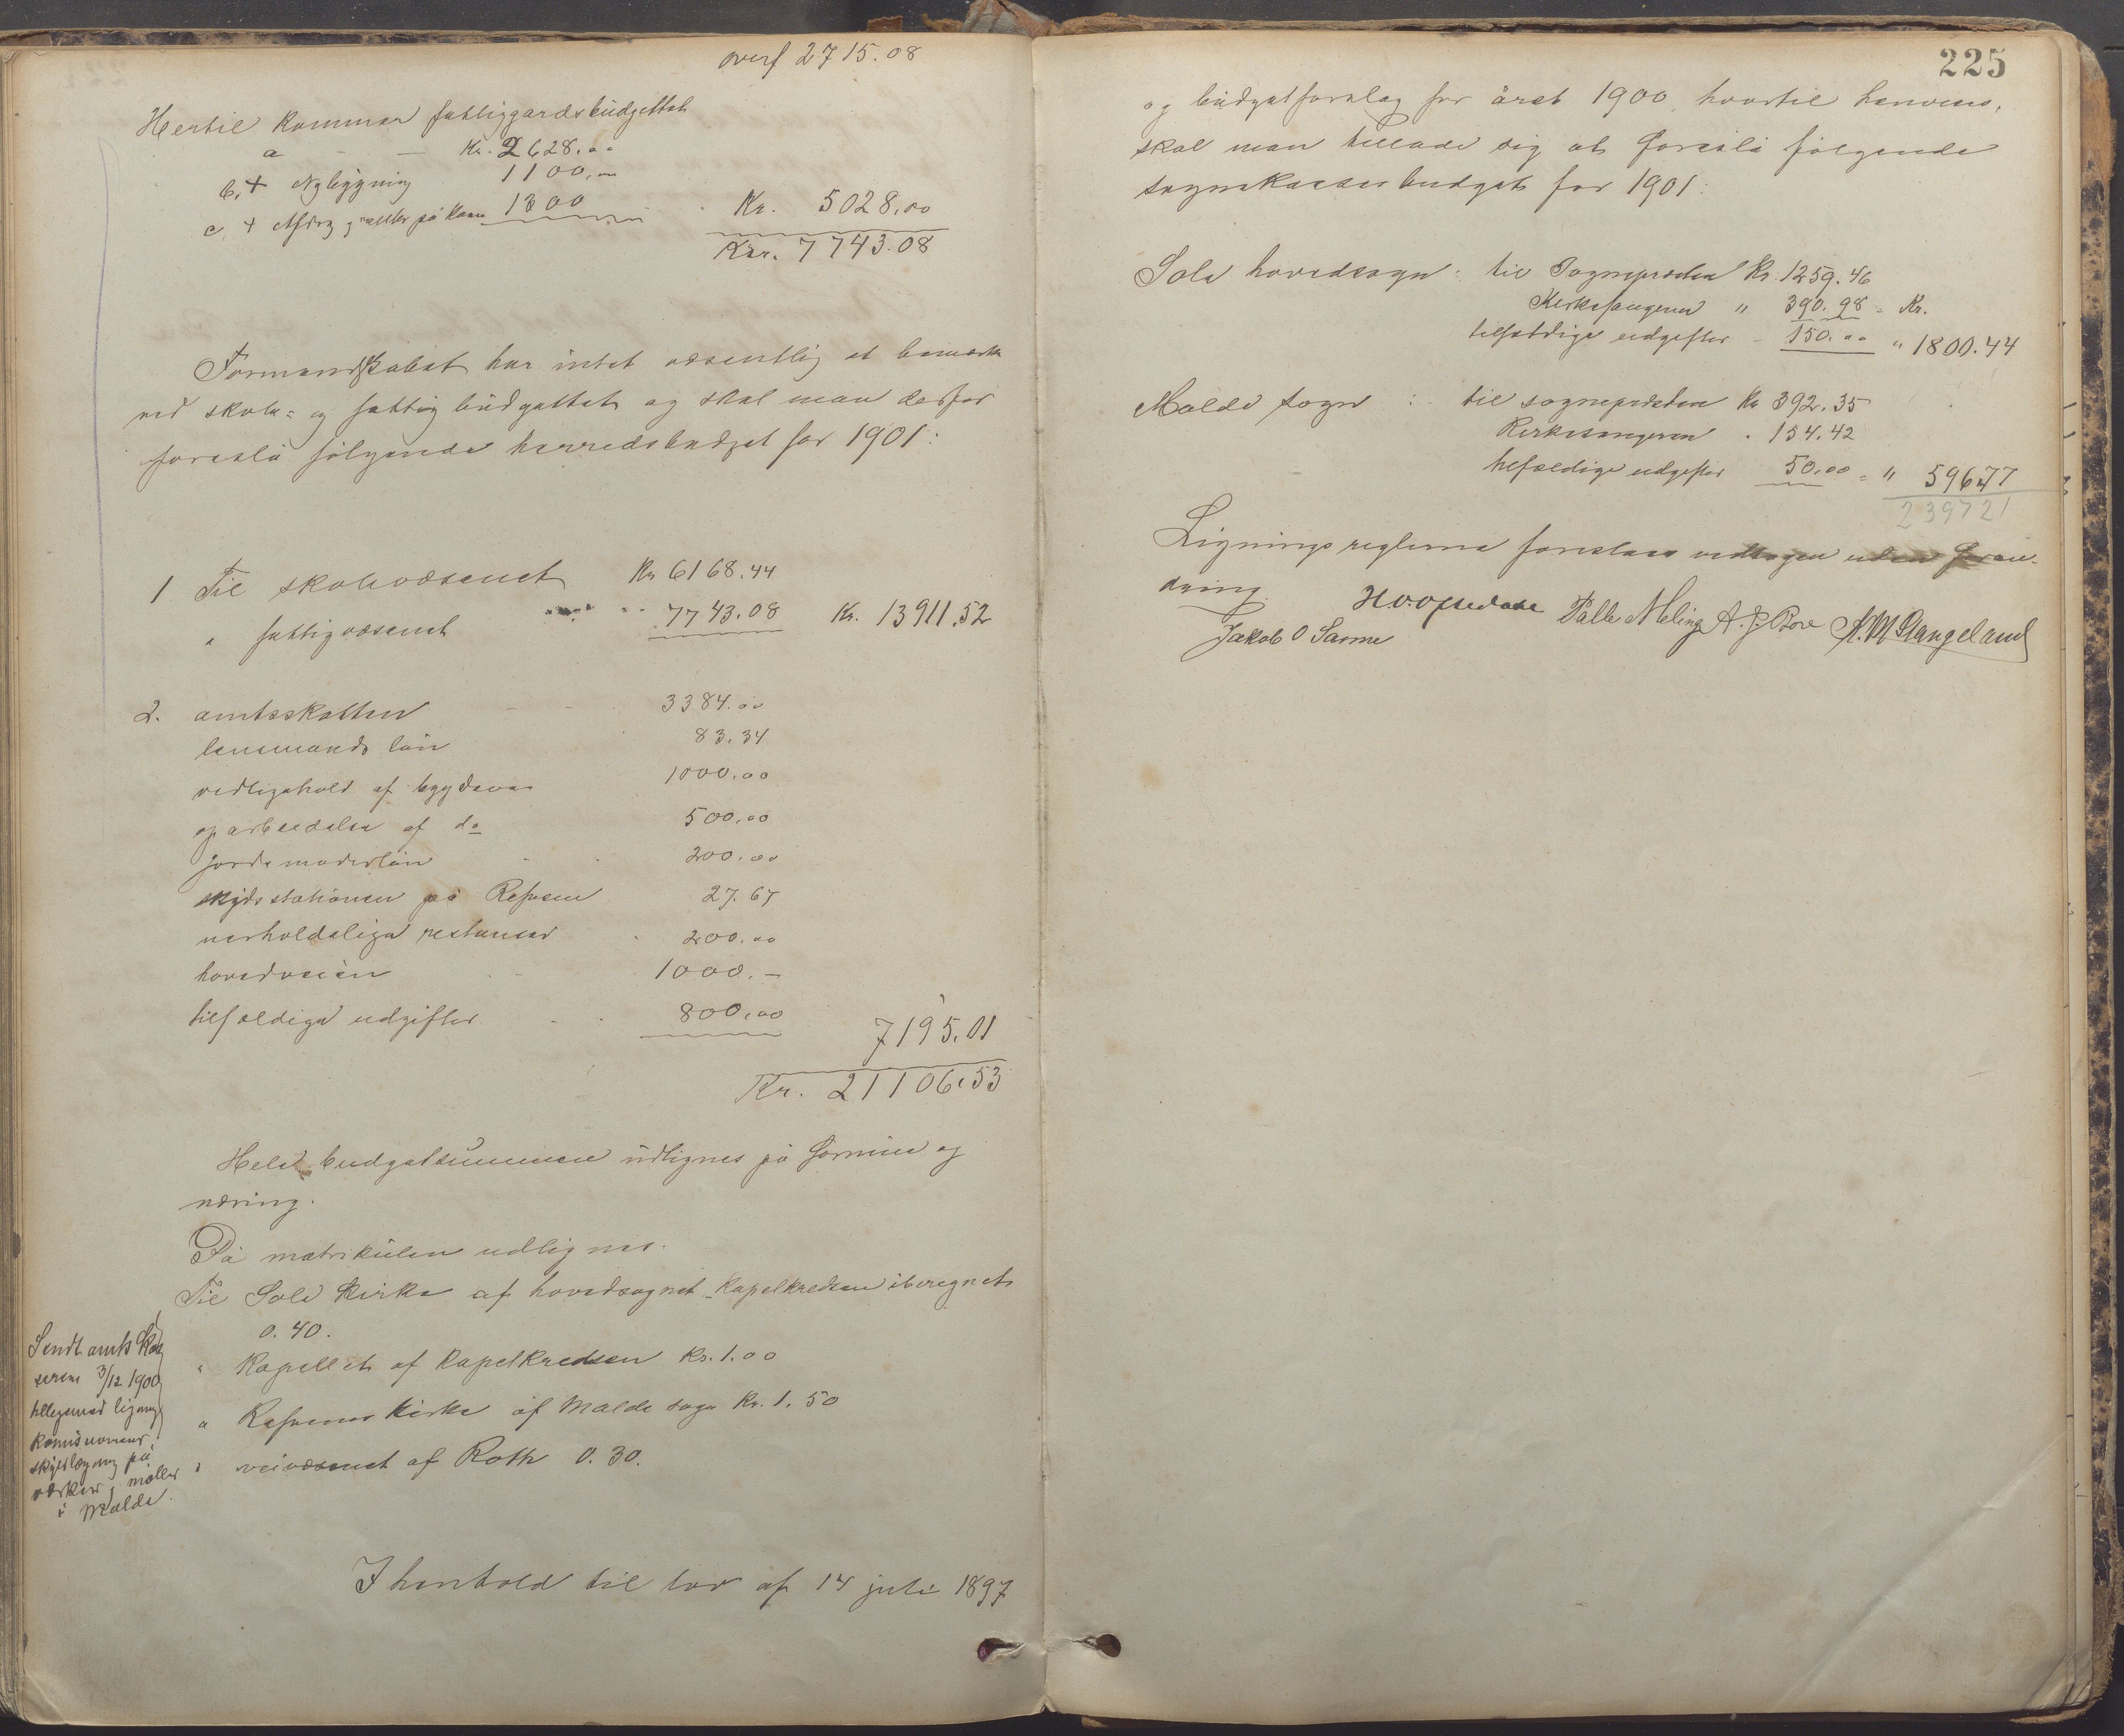 overf 2715.08
Hertil kommer fattiggardsbüdgettet
a — — Kr. 2628.00
b. + Nybygning 1100.00
c + Afdrg g renter på laan 1300 Kr. 5028.00
Kr. 7743.08
Formandskabet har intet væsentlig at bemærke
ved skole= og fattigbüdgettet og skal man derfor
foreslå følgende herredsbudget for 1901:
1 Til skolevæsenet Kr 6168.44
" fattigvæsenet 7743.08 Kr. 13911.52
2. amtsskatten 3384.00
lensmands løn 83.34
vedligehold af bygdevei 1000.00
oparbeidelse af do 500.00
jordemoderløn 200.00
skydsstationen på Refsem 27.67
uerholdelige restanser 200.00
hovedveien 1000.–
tilfældige udgifter 800.00 7195.01
Kr. 21106.53
Hele budgetsummen üdlignes på formue og
næring.
På matrikülen udlignes.
Til Sole kirke af hovedsognet - kapelkredsen iberegnet
0.40.
" Kapellet af kapelkredsen Kr. 1.00
" Refsnes kirke af Malde sogn Kr. 1.50
" veivæsenet af Roth 0.30.
Sendt amts Kas
sereren 3/12 1900
tillegemed ligning
komissionens
skyldlægning på
værker g møller
i Malde.
I henhold til lov af 14 juli 1897
225
og büdgetforslag for året 1900, hvortil henvises,
skal man tillade sig at foreslå følgende
sognekassesbudget for 1901:
Sole hovedsogn: til Sognepresten Kr. 1259.46
Kirkesangeren " 390.98 = Kr.
tilfældige udgifter - 150.00 " 1800.44
Malde sogn : til sognepresten Kr 392.35
Kirkesangeren " 154.42
tilfældige udgifter 50.00 = " 596.77
239721
Ligningsreglerne foreslaas vedtagen uden foran-
dring.
H.O. Opstedahl Palle Meling A. J. Bore A. M Stangeland
Jakob O Sømme